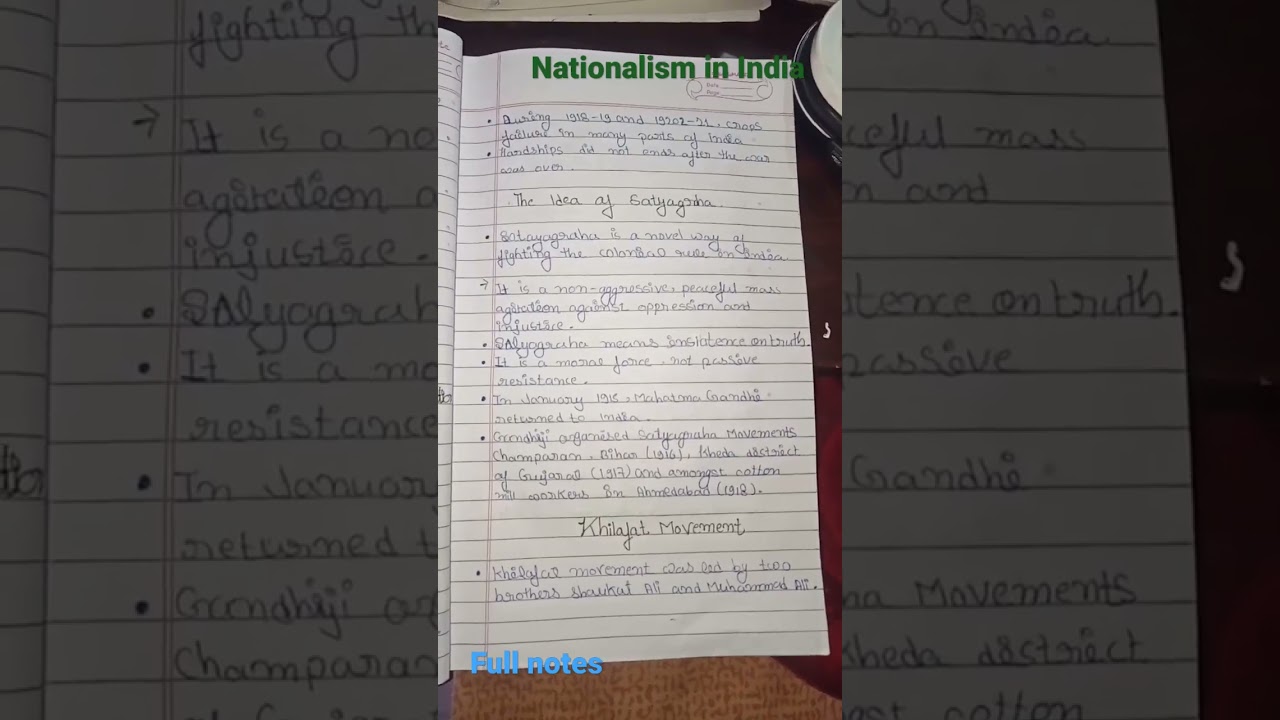 Nationalism in India
Date
Page
During 1918-19 and 19202-21, crops
failure in many parts of India
Hardships did not ends after the war
was over.
The Idea of Satyagrha.
Satayagraha is a novel way of
fighting the colonial rule on India
→ It is a non-aggressive, peaceful mass
agitation against oppression and
injustice.
Satyagraha means insistence on truth.
It is a moral force, not passive
resistance.
In January 1915, Mahatma Gandhi
returned to India.
Gandhiji organised Satyagraha Movements
Champaran, Bihar (1916), Kheda district
of Gujarat (1917) and amongst cotton
mill workers in Ahmedabad (1918).
Khilafat Movement
Khilafat movement was led by two
brothers Shaukat Ali and Muhammad Ali.
Full notes